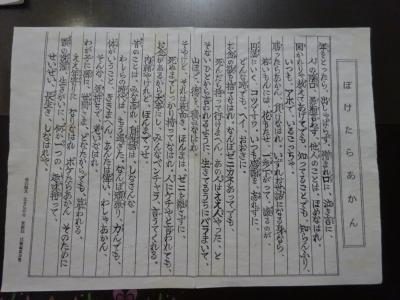 ぼけたらあかん
年をとったら、出しゃばらず、憎まれ口に、泣き言に、
人の陰口、愚痴言わず、他人のことは、ほめなはれ、
聞かれりゃ教えてあげてでも、知ってることでも、知らんふり、
いつも、アホで、いるこっちゃ。
勝ったらあかん、負けなはれ、いずれお世話になる身なら、
若いもんには、花持たせ、一歩さがって、譲るのが
円満にいく、コツですわ。いつも感謝を、忘れずに、
どんな時でも、ヘイ、おおきに。
お金の欲を捨てなはれ、なんぼゼニカネあってても、
死んだら持って行けまへん、あの人はええ人やった、と
そないひとから言われるように、生きてるうちにバラまいて、
山ほど、徳を、積みなはれ。
そやけど、それは表向き、ほんまは、ゼニを離さずに、
死ぬまでしっかり持ってなはれ、人にケチやと言われても、
お金があるから大事にし、みんな、ベンチャラ、言うてくれる。
内緒やけれど、ほんまでっせ。
昔のことは、みな忘れ、自慢話は、しなはんな、
わしらの時代は、もう過ぎた、なんぼ頑張り、力んでも、
体がいうこと、ききまへん、あんたは偉い、わしゃあかん、
そんな、気持で、おいなはれ。
わが子に孫に、世間さま、どなたからでも、慕われる、
ええ年寄りに、なりなはれ、ボケたらあかん、そのために
頭の洗濯、生きがいに、何か一つの、趣味持って、
せいぜい、長生き、しなはれや。